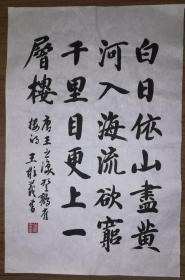 白日依山盡黄
河入海流欲窮
千里目更上一
層樓
唐王之渙登鸛雀
樓詩